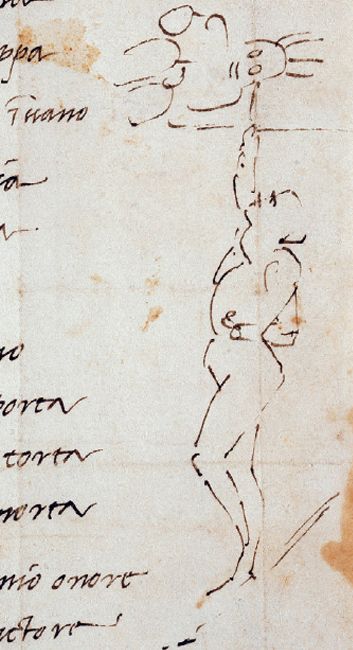 ppa
ĩuano
ia
a
no
porta
torta
morta
mio onore
ictore